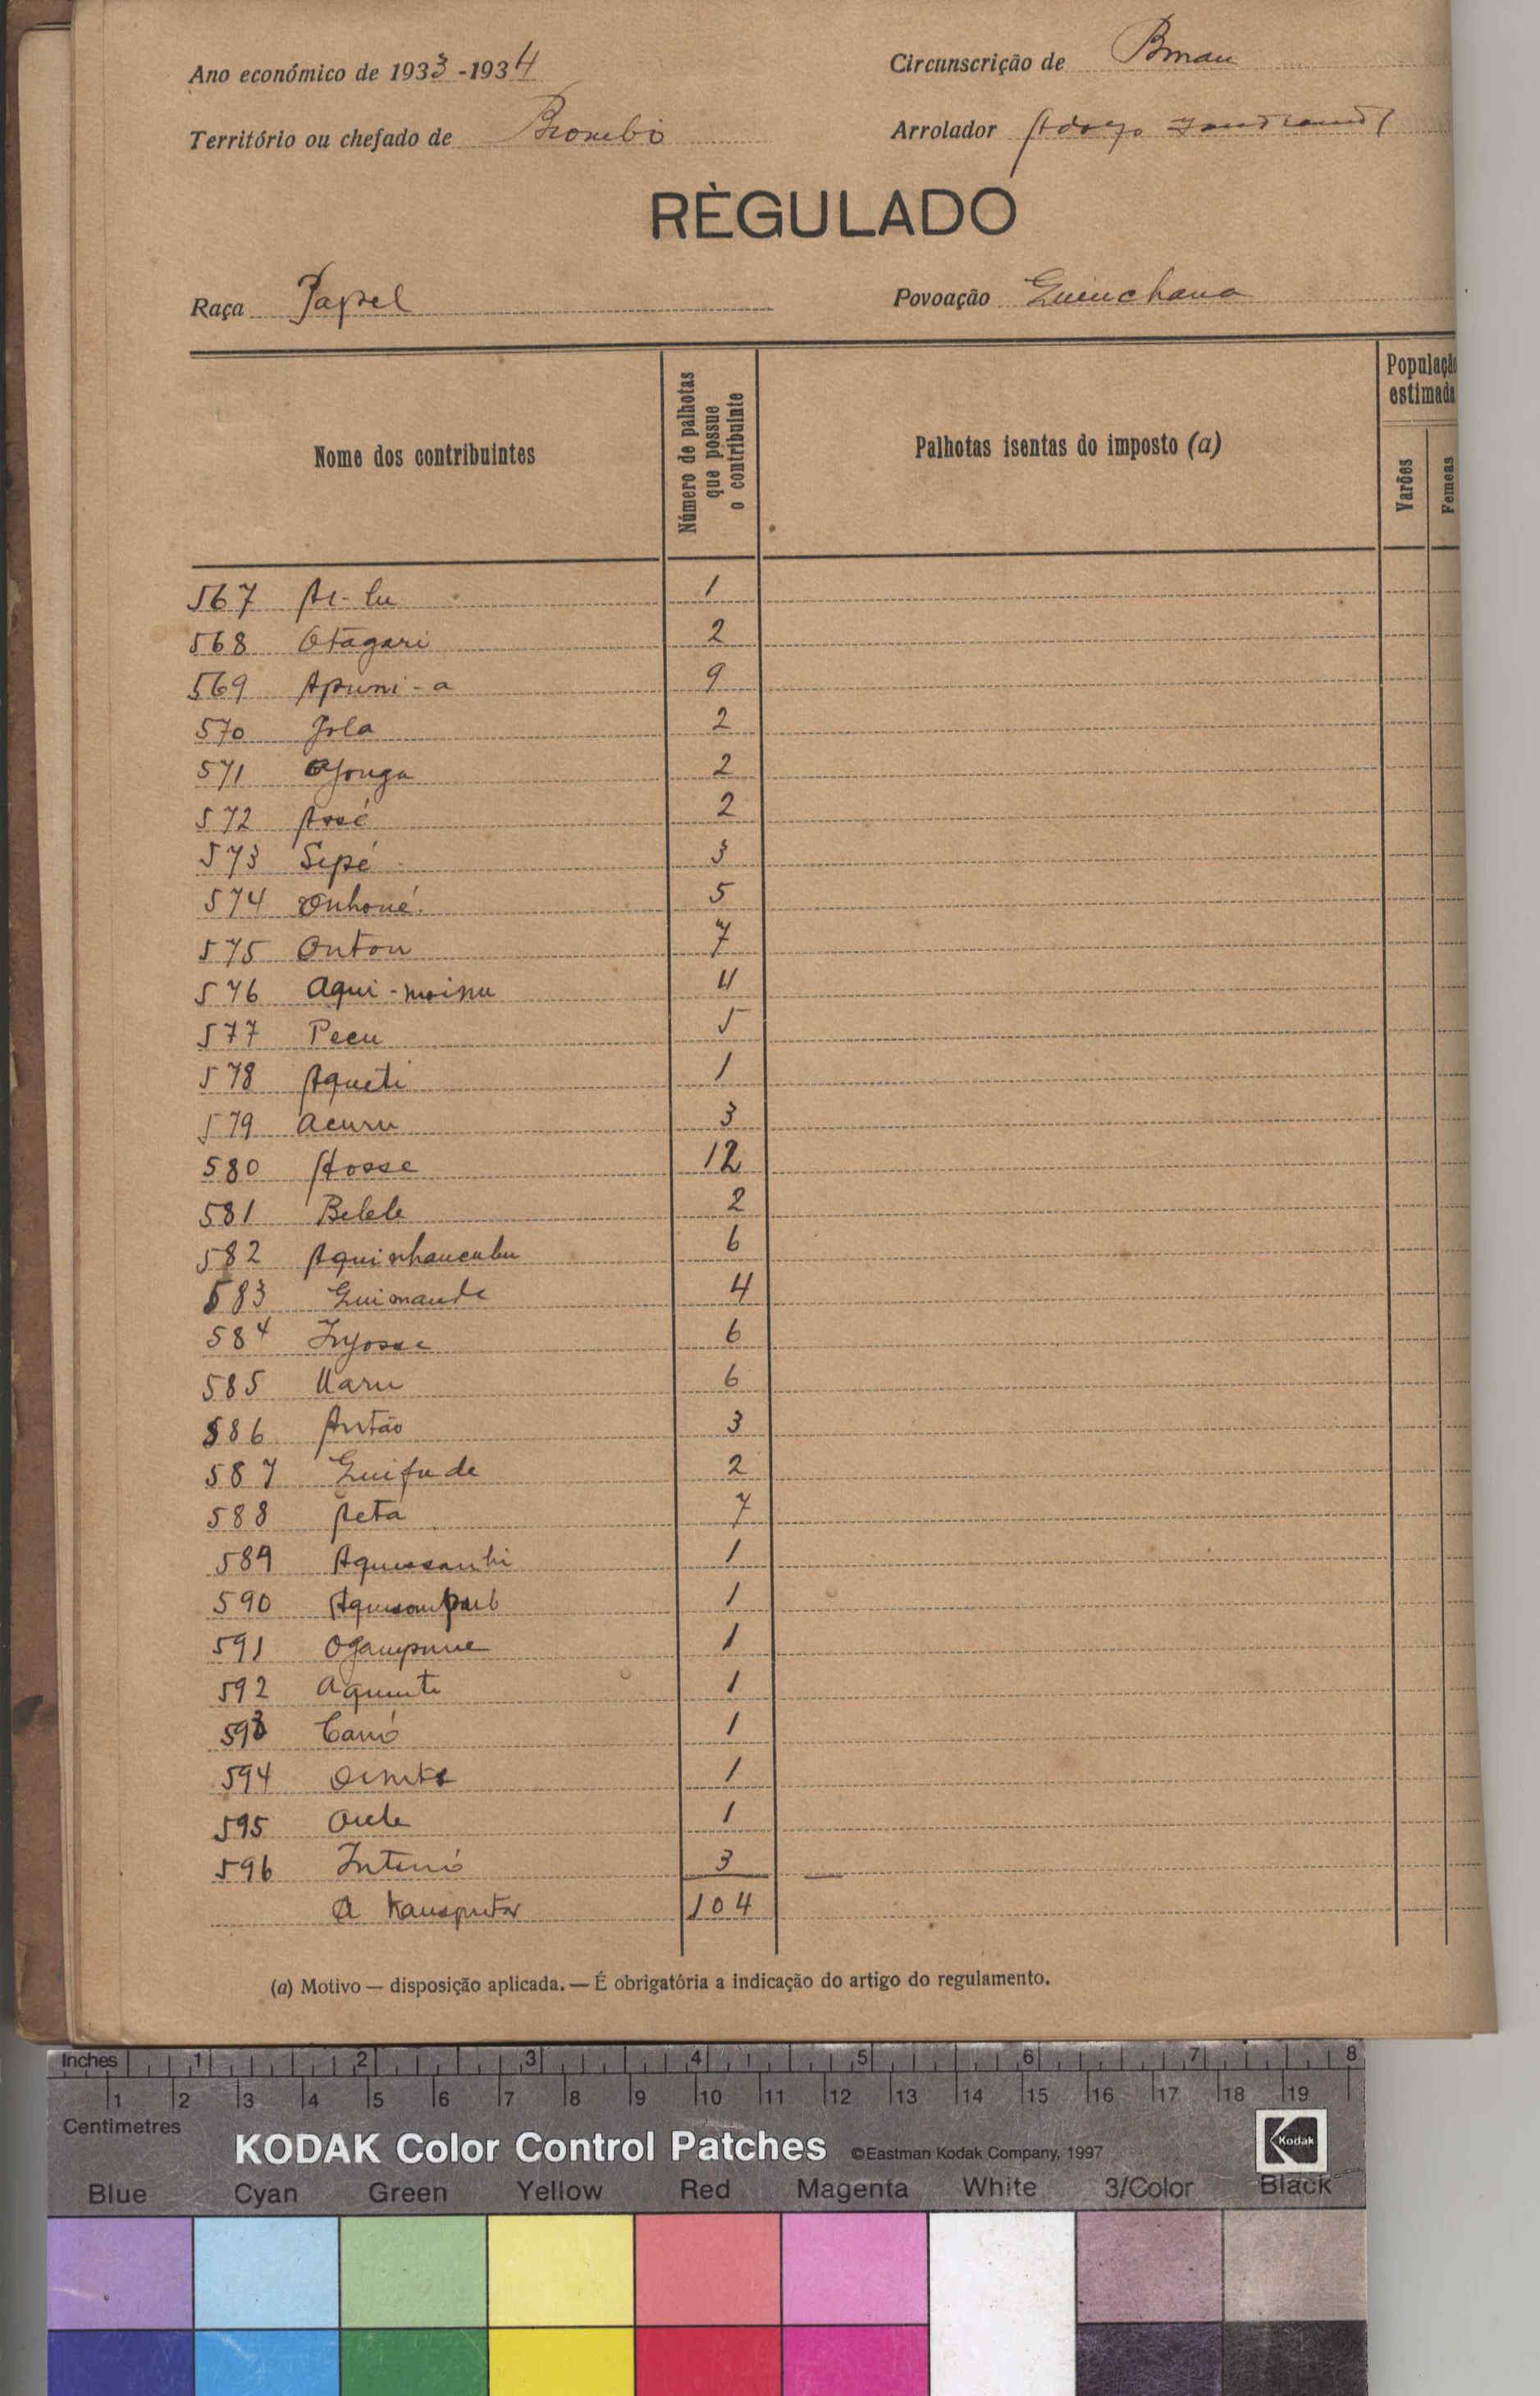 Ano económico de 1933-1934
Circunscrição de
Território ou chefado de Biombo
Arrolador
RÈGULADO
Raça Papel
Povoação Quinchana
Nome dos contribuintes
Número de palhotas que possue o contribuinte
Palhotas isentas do imposto (a)
População estimada
Varões
Femeas
567 1
568 Otagari 2
569 Apuni-a 9
570 Jola 2
571 2
572 Assé 2
573 Sepé 3
574 Onhoué 5
575 Onton 7
576 Aqui- 4
577 Pecu 5
578 Aqueti 1
579 Acuru 3
580 Hosse 12
581 Belele 2
582 6
583 Quimande 4
584 Injosse 6
585 Uaru 6
586 Antão 3
587 Quifade 2
588 7
589 1
590 1
591 1
592 1
593 1
594 1
595 1
596 3
A transportar 104
(a) Motivo — disposição aplicada. — É obrigatória a indicação do artigo do regulamento.
Inches 1 2 3 4 5 6 7 8
1 2 3 4 5 6 7 8 9 10 11 12 13 14 15 16 17 18 19
Centimetres
KODAK Color Control Patches ©Eastman Kodak Company, 1997 Kodak
Blue Cyan Green Yellow Red Magenta White 3/Color Black